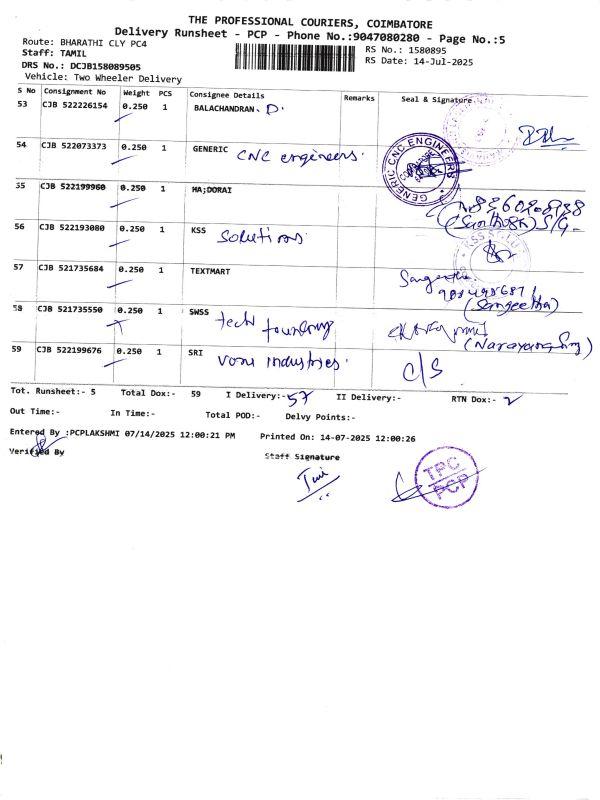 THE PROFESSIONAL COURIERS, COIMBATORE
Delivery Runsheet - PCP - Phone No.:9047080280 - Page No.:5
Route: BHARATHI CLY PC4 RS No.: 1580895
Staff: TAMIL RS Date: 14-Jul-2025
DRS No.: DCJB158089505
Vehicle: Two Wheeler Delivery
S No Consignment No Weight PCS Consignee Details Remarks Seal & Signature
53 CJB 522226154 0.250 1 BALACHANDRAN. D.
54 CJB 522073373 0.250 1 GENERIC CNC engineers.
GENERIC CNC ENGINEERS
COIMBATORE
55 CJB 522199960 0.250 1 HA;DORAI
8360208938
S/G.
56 CJB 522193080 0.250 1 KSS Solutions
57 CJB 521735684 0.250 1 TEXTMART Sangeetha
(Sangeetha)
58 CJB 521735550 0.250 1 SWSS tech foundry
59 CJB 522199676 0.250 1 SRI industries. C/S
Tot. Runsheet:- 5 Total Dox:- 59 I Delivery:- 57 II Delivery:- RTN Dox:- 2
Out Time:- In Time:- Total POD:- Delvy Points:-
Entered By :PCPLAKSHMI 07/14/2025 12:00:21 PM Printed On: 14-07-2025 12:00:26
Verified By Staff Signature
TPC
PCP